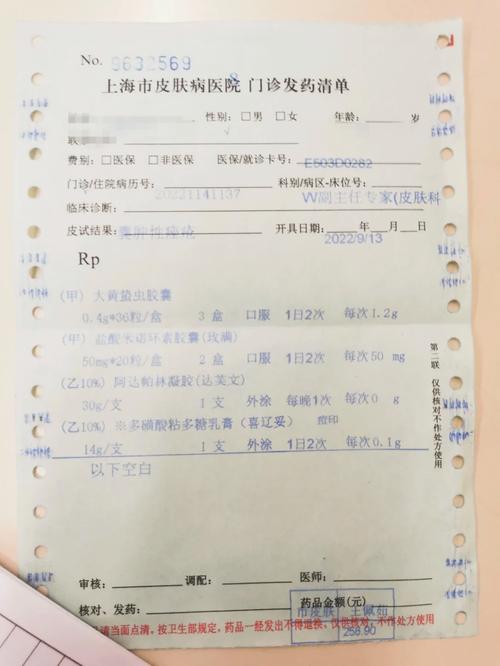 No. 9632569
上海市皮肤病医院 门诊发药清单
性别：□男 □女 年龄： 岁
联
费别：□医保 □非医保 医保/就诊卡号： E503D0282
门诊/住院病历号： 20221141137 科别/病区-床位号：
临床诊断： VV副主任专家(皮肤科
皮试结果： 囊肿性痤疮 开具日期： 2022/9/13 年 月 日
Rp
(甲) 大黄蛰虫胶囊
0.4g*36粒/盒 3 盒 口服 1日2次 每次1.2g
(甲) 盐酸米诺环素胶囊(玫满)
50mg*20粒/盒 2 盒 口服 1日2次 每次50 mg
(乙10%) 阿达帕林凝胶(达芙文)
30g/支 1 支 外涂 每晚1次 每次0 g
(乙10%) ※多磺酸粘多糖乳膏（喜辽妥） 痘印
14g/支 1 支 外涂 1日2次 每次0.1g
以下空白
第二联 仅供核对不作处方使用
审核： 调配： 医师：
核对、发药： 药品金额(元)
市皮肤 王佩茹
256.90
请当面点清，按卫生部规定，药品一经发出不得退换，仅供核对，不作处方使用